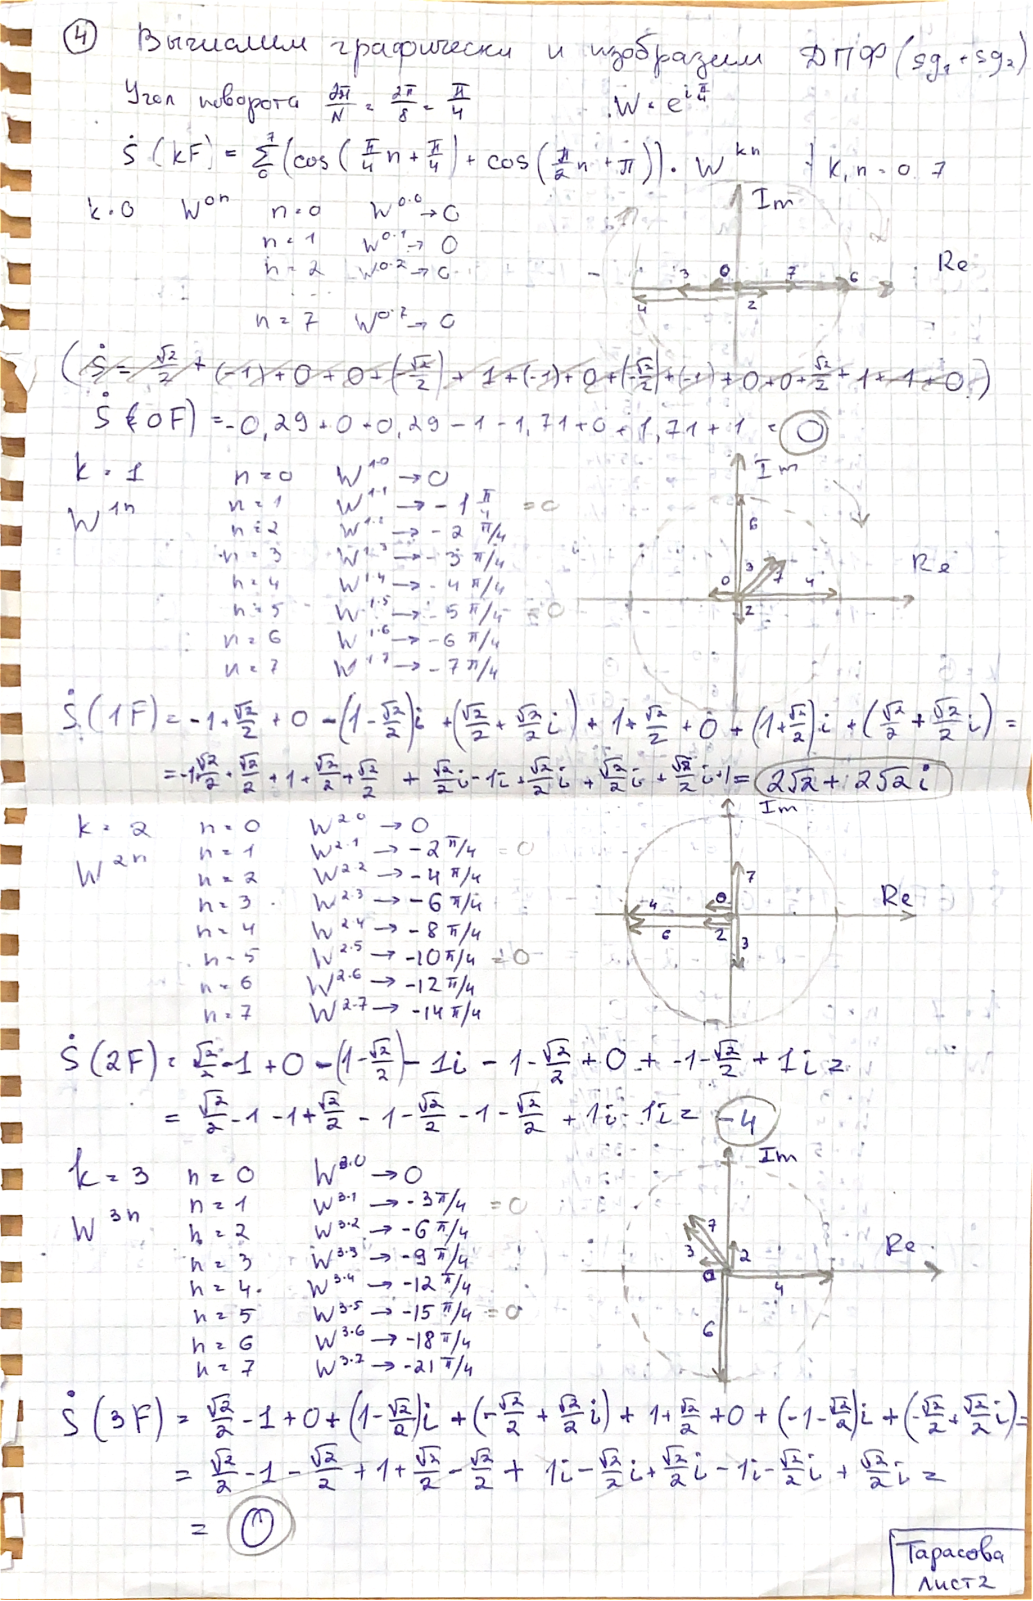 ④ Вычислим графически и изобразим ДПФ (sg₁ + sg₂)
Угол поворота 2π/N = 2π/8 = π/4 W = e^{iπ/4}
Ṡ(kF) = Σ₀⁷ (cos(π/4 n + π/4) + cos(π/2 n + π)) · W^{kn} k, n = 0..7
k=0 W^{0n} n=0 W^{0·0} → 0
n=1 W^{0·1} → 0
n=2 W^{0·2} → 0
n=7 W^{0·7} → 0
Im
Re
4 3 0 2 7 6
(Ṡ = √2/2 + (-1) + 0 + 0 + (-√2/2) + 1 + (-1) + 0 + (-√2/2) + (-1) + 0 + 0 + √2/2 + 1 + 1 + 0)
Ṡ(0F) = -0,29 + 0 + 0,29 - 1 - 1,71 + 0 + 1,71 + 1 = 0
k=1 n=0 W^{1·0} → 0
W^{1n} n=1 W^{1·1} → -1 π/4 = 0
n=2 W^{1·2} → -2 π/4
n=3 W^{1·3} → -3 π/4
n=4 W^{1·4} → -4 π/4
n=5 W^{1·5} → -5 π/4 = 0
n=6 W^{1·6} → -6 π/4
n=7 W^{1·7} → -7 π/4
Im
Re
6 3 7 0 4 2
Ṡ(1F) = -1 + √2/2 + 0 - (1 - √2/2)i + (√2/2 + √2/2 i) + 1 + √2/2 + 0 + (1 + √2/2)i + (√2/2 + √2/2 i) =
= -1 √2/2 + √2/2 + 1 + √2/2 + √2/2 + √2/2 i - 1i + √2/2 i + √2/2 i + √2/2 i + 1 = 2√2 + 2√2 i
k=2 n=0 W^{2·0} → 0
W^{2n} n=1 W^{2·1} → -2 π/4 = 0
n=2 W^{2·2} → -4 π/4
n=3 W^{2·3} → -6 π/4
n=4 W^{2·4} → -8 π/4
n=5 W^{2·5} → -10 π/4 = 0
n=6 W^{2·6} → -12 π/4
n=7 W^{2·7} → -14 π/4
Im
Re
7 4 0 6 2 3
Ṡ(2F) = √2/2 - 1 + 0 - (1 - √2/2) - 1i - 1 - √2/2 + 0 + -1 - √2/2 + 1i =
= √2/2 - 1 - 1 + √2/2 - 1 - √2/2 - 1 - √2/2 + 1i - 1i = -4
k=3 n=0 W^{3·0} → 0
W^{3n} n=1 W^{3·1} → -3 π/4 = 0
n=2 W^{3·2} → -6 π/4
n=3 W^{3·3} → -9 π/4
n=4 W^{3·4} → -12 π/4
n=5 W^{3·5} → -15 π/4 = 0
n=6 W^{3·6} → -18 π/4
n=7 W^{3·7} → -21 π/4
Im
Re
7 3 2 0 4 6
Ṡ(3F) = √2/2 - 1 + 0 + (1 - √2/2)i + (-√2/2 + √2/2 i) + 1 + √2/2 + 0 + (-1 - √2/2)i + (-√2/2 + √2/2 i) =
= √2/2 - 1 - √2/2 + 1 + √2/2 - √2/2 + 1i - √2/2 i + √2/2 i - 1i - √2/2 i + √2/2 i =
= 0
Тарасова
Лист 2